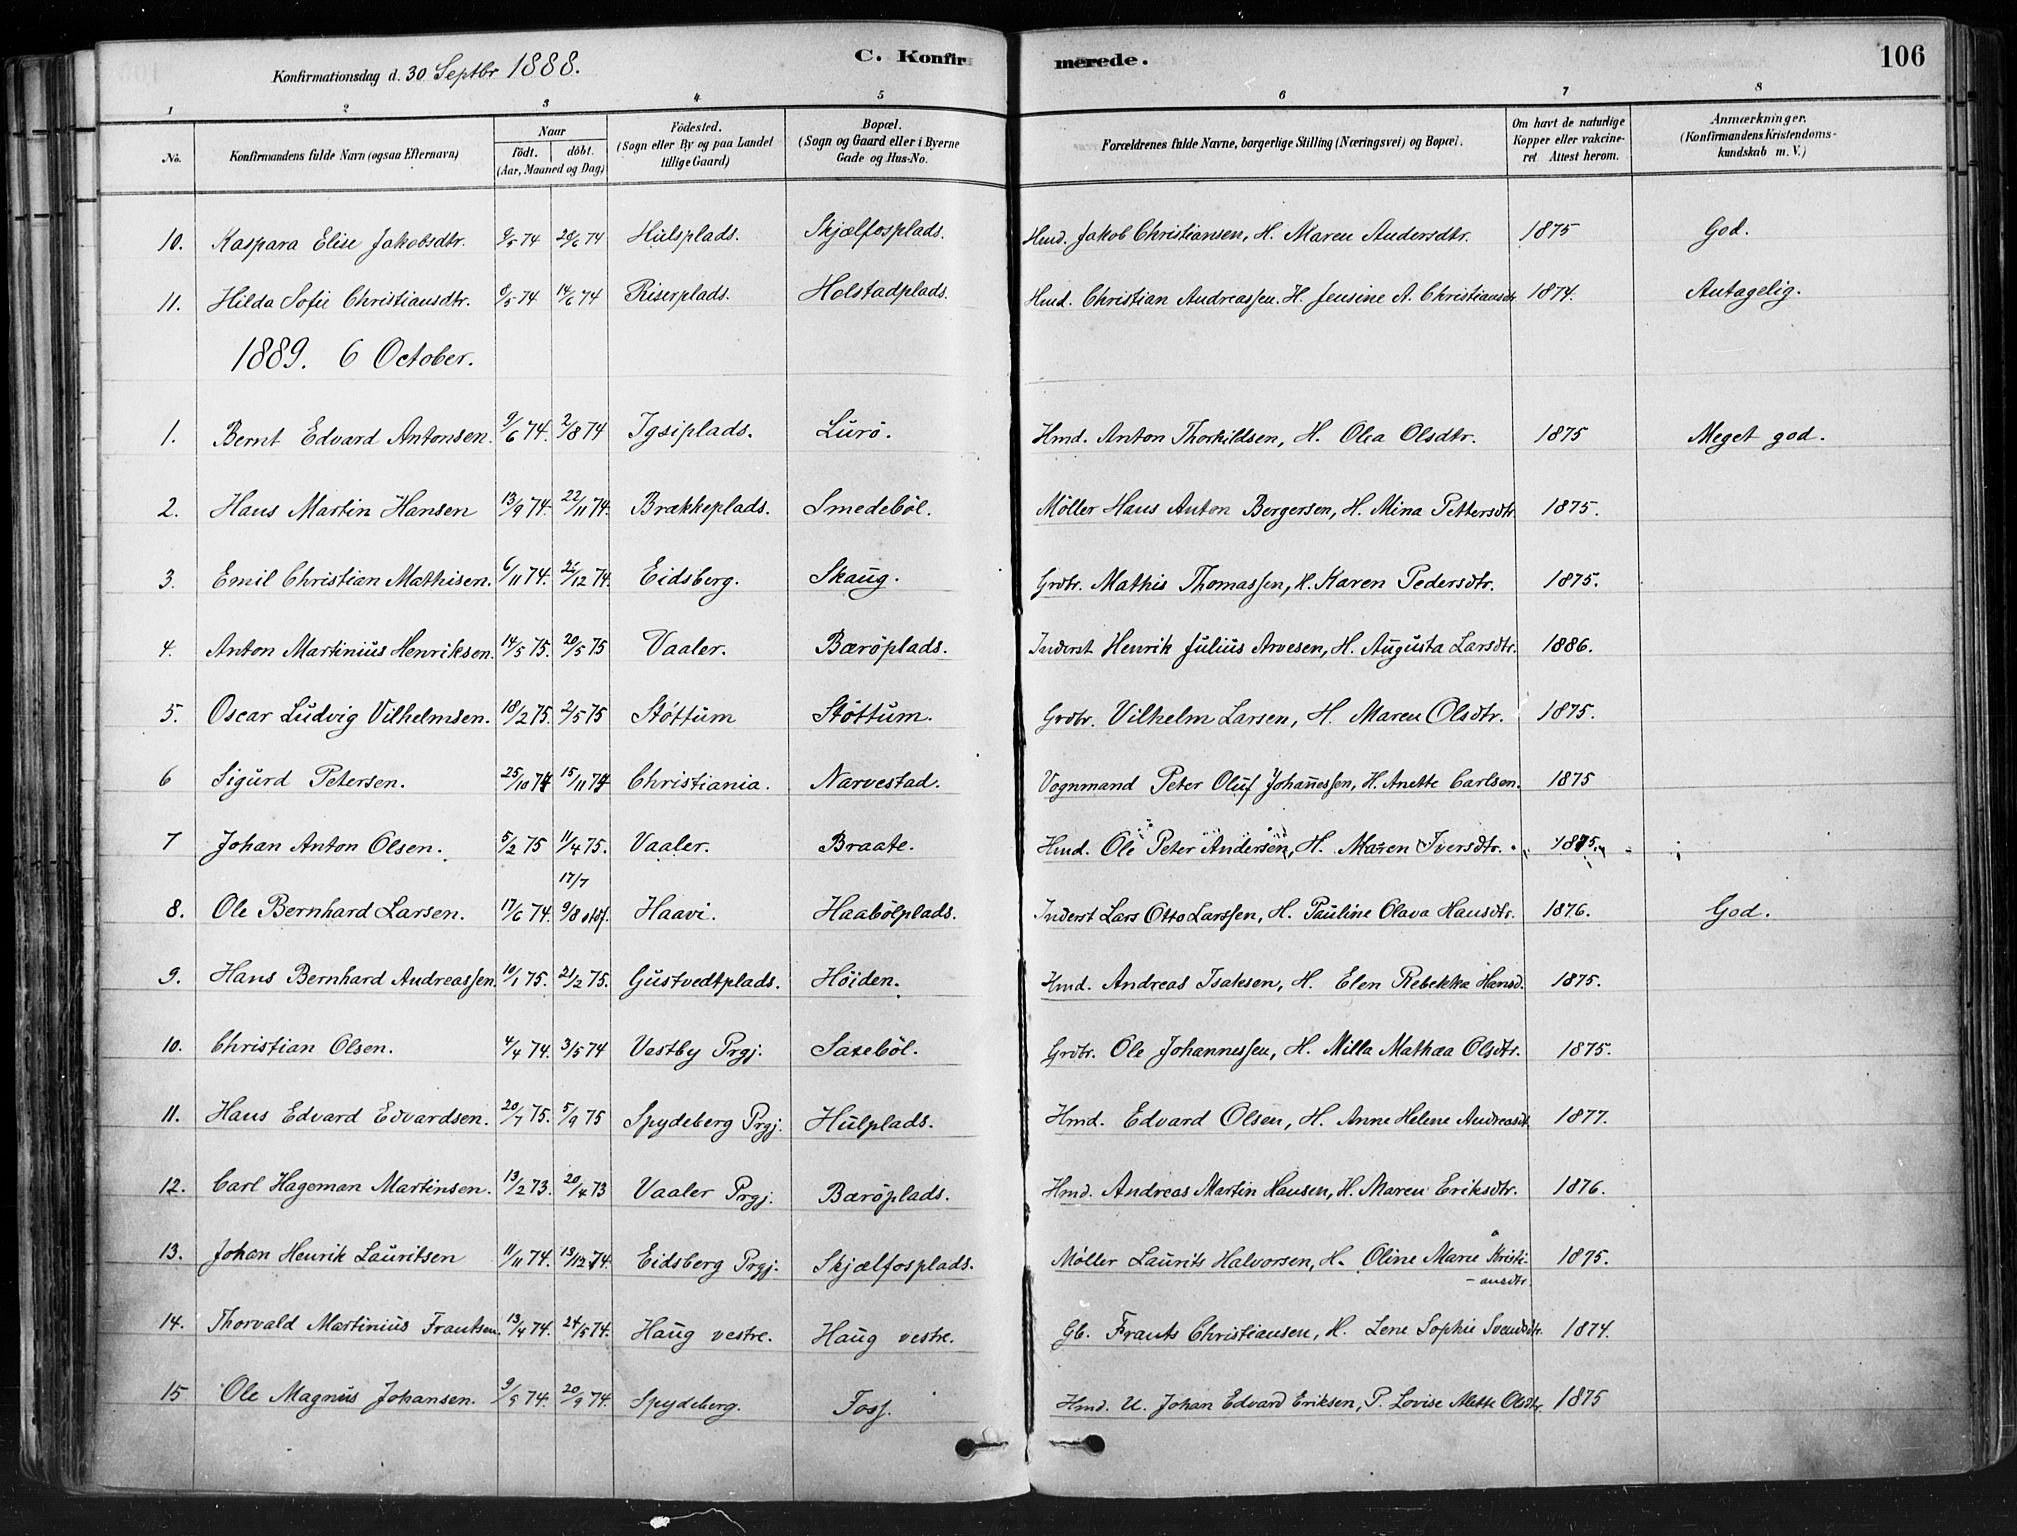 Konfirmationsdag d. 30 Septbr 1888.
C. Konfirmerede.
106
1 2 3 4 5 6 7 8
No. Konfirmandens fulde Navn (ogsaa Efternavn) Naar født. døbt. (Aar, Maaned og Dag) Fødested. (Sogn eller By og paa Landet tillige Gaard) Bopæl. (Sogn og Gaard eller i Byerne Gade og Hus-No. Forældrenes fulde Navne, borgerlige Stilling (Næringsvei) og Bopæl. Om havt de naturlige Kopper eller vakcineret Attest herom. Anmærkninger. (Konfirmandens Kristendomskundskab m. V.)
10. Kaspara Elise Jakobsdtr. 9/5 74 29/6 74 Hulsplads. Skjælfosplads. Hmd. Jakob Christiansen, H. Maren Andersdtr. 1875 God.
11. Hilda Sofie Christiansdtr. 9/5 74 14/6 74 Riserplads. Holstadplads. Hmd. Christian Andreassen. H. Jensine A. Christiansdtr 1874. Antagelig.
1889. 6 October.
1. Bernt Edvard Antonsen. 9/6 74. 2/8 74 Igsiplads. Lurö. Hmd. Anton Thorkildsen, H. Olea Olsdtr. 1875 Meget god.
2. Hans Martin Hansen 13/9 74. 22/11 74. Brækkeplads. Smedeböl. Møller Hans Anton Borgersen, H. Mina Pettersdtr 1875.
3. Emil Christian Mathisen. 6/11 74. 26/12 74. Eidsberg. Skaug. Grdbr. Mathis Thomassen, H. Karen Pedersdtr. 1875.
4. Anton Martinius Henriksen. 14/5 75. 20/5 75 Vaaler. Bæröplads. Inderst Henrik Julius Arvesen, H. Augusta Larsdtr. 1886.
5. Oscar Ludvig Vilhelmsen. 18/2 75. 2/5 75 Støttum Støttum. Grdbr. Vilhelm Larsen, H. Maren Olsdtr. 1875.
6 Sigurd Petersen. 25/10 74 15/11 74 Christiania. Narvestad. Vognmand Peter Oluf Johannessen, H. Anette Carlsen. 1875
7 Johan Anton Olsen. 5/2 75 11/4 75. Vaaler. Braate. Hmd. Ole Peter Andersen, H. Maren Iversdtr. 1875.
8. Ole Bernhard Larsen. 17/6 74. 17/7 9/8 stdf. Haavi. Haabölplads. Inderst Lars Otto Larssen, H. Pauline Olava Hansdtr. 1876. God.
9. Hans Bernhard Andreassen. 10/1 75. 21/2 75. Gustvedtplads. Höiden. Hmd. Andreas Isaksen, H. Elen Rebekka Hansd. 1875.
10. Christian Olsen. 4/4 74. 3/5 74 Vestby Prgj. Saxeböl. Grdbr. Ole Johannessen, H. Milla Mathea Olsdtr. 1875.
11. Hans Edvard Edvardsen. 20/7 75. 5/9 75 Spydeberg Prgj. Hulplads. Hmd. Edvard Olsen, H. Anne Helene Andreasdt. 1877.
12. Carl Hageman Martinsen. 13/2 73. 20/4 73 Vaaler Prgj. Bæröplads. Hmd. Andreas Martin Hansen, H. Maren Eriksdtr. 1876.
13. Johan Henrik Lauritsen 11/11 74. 13/12 74. Eidsberg Prgj. Skjælfosplads. Møller Laurits Halvorsen, H. Oline Marie Kristi-
-ansdtr. 1875.
14. Thorvald Martinius Frantsen. 13/4 74. 24/5 74. Haug vestre. Haug vestre. Gb. Frants Christiansen, H. Lene Sophie Svendsdtr. 1874.
15 Ole Magnus Johansen. 9/9 74. 20/9 74. Spydeberg. Foss. Hmd. U. Johan Edvard Eriksen, P. Lovise Alette Olsdtr. 1875